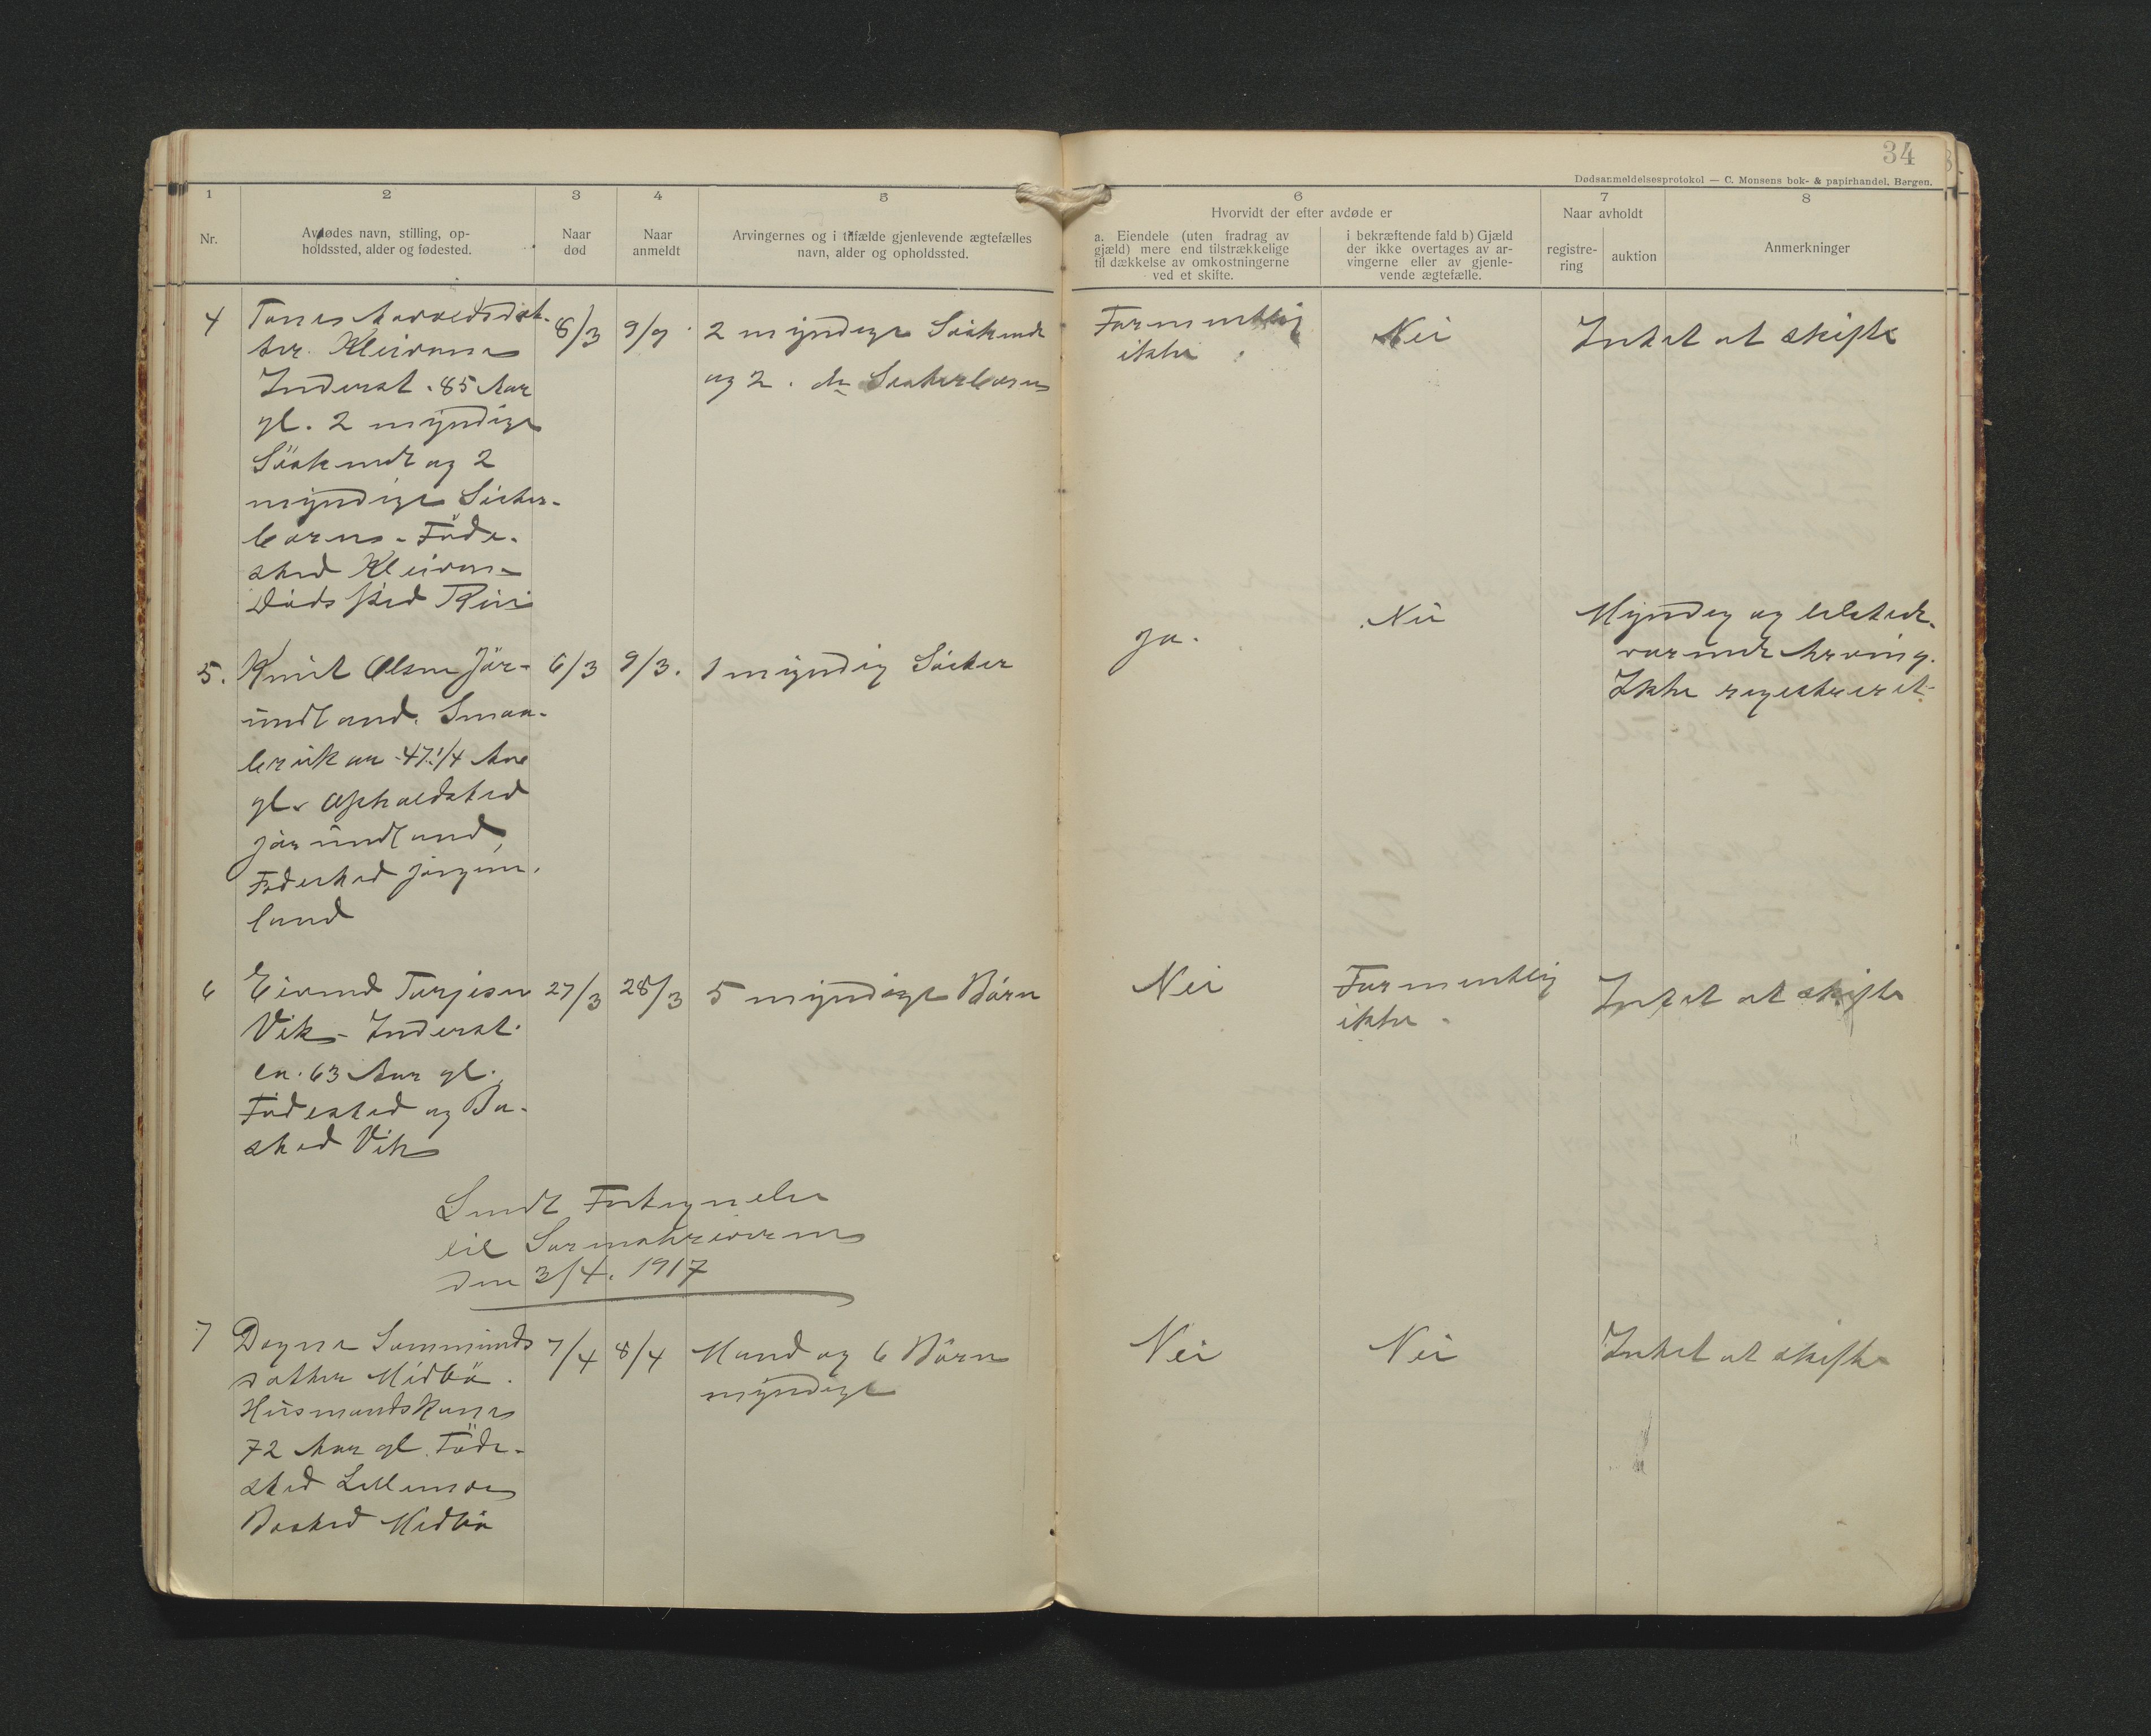 34
Dødsanmeldelsesprotokol — C. Monsens bok- & papirhandel, Bergen.
1
2
3
4
5
6
7
8
Nr.
Avdødes navn, stilling, op-
holdssted, alder og fødested.
Naar
død
Naar
anmeldt
Arvingernes og i tilfælde gjenlevende ægtefælles
navn, alder og opholdssted.
Hvorvidt der efter avdøde er
a. Eiendele (uten fradrag av
gjæld) mere end tilstrækkelige
til dækkelse av omkostningerne
ved et skifte.
i bekræftende fald b) Gjæld
der ikke overtages av ar-
vingerne eller av gjenle-
vende ægtefælle.
Naar avholdt
registre-
ring
auktion
Anmerkninger
4
ter. Kleivene
Inderst. 85 Aar
gl. 2 myndige
Søskende og 2
myndige Søster-
børn - Føde-
sted Kleivene
Dødssted
8/3
2 myndige Søskende
og 2. do Søsterbørn
Formentlig
ikke
Nei
Intet at skifte
5.
Knut Olsen Jør-
undland. Smaa-
bruker 47 1/4 Aar
gl. Opholdsted
Jørundland,
Fødested Jørgun-
land
6/3
9/3.
1 myndig Søster
Ja.
Nei
Myndig og tilstede-
værende Arving.
Ikke registreret.
6
Eivind Tarjesen
Vik - Inderst.
ca. 63 Aar gl.
Fødested og Bo-
sted Vik
27/3
28/3
5 myndige Børn
Nei
Formentlig
ikke -
Intet at skifte
Sendt Fortegnelse
til Sorenskriveren
den 3/4. 1917
7
Dagne Sammunds
datter Midbø.
Husmandskone
72 Aar gl. Føde-
sted
Bosted Midbø
7/4
8/4
Mand og 6 Børn
myndige
Nei
Nei
Intet at skifte